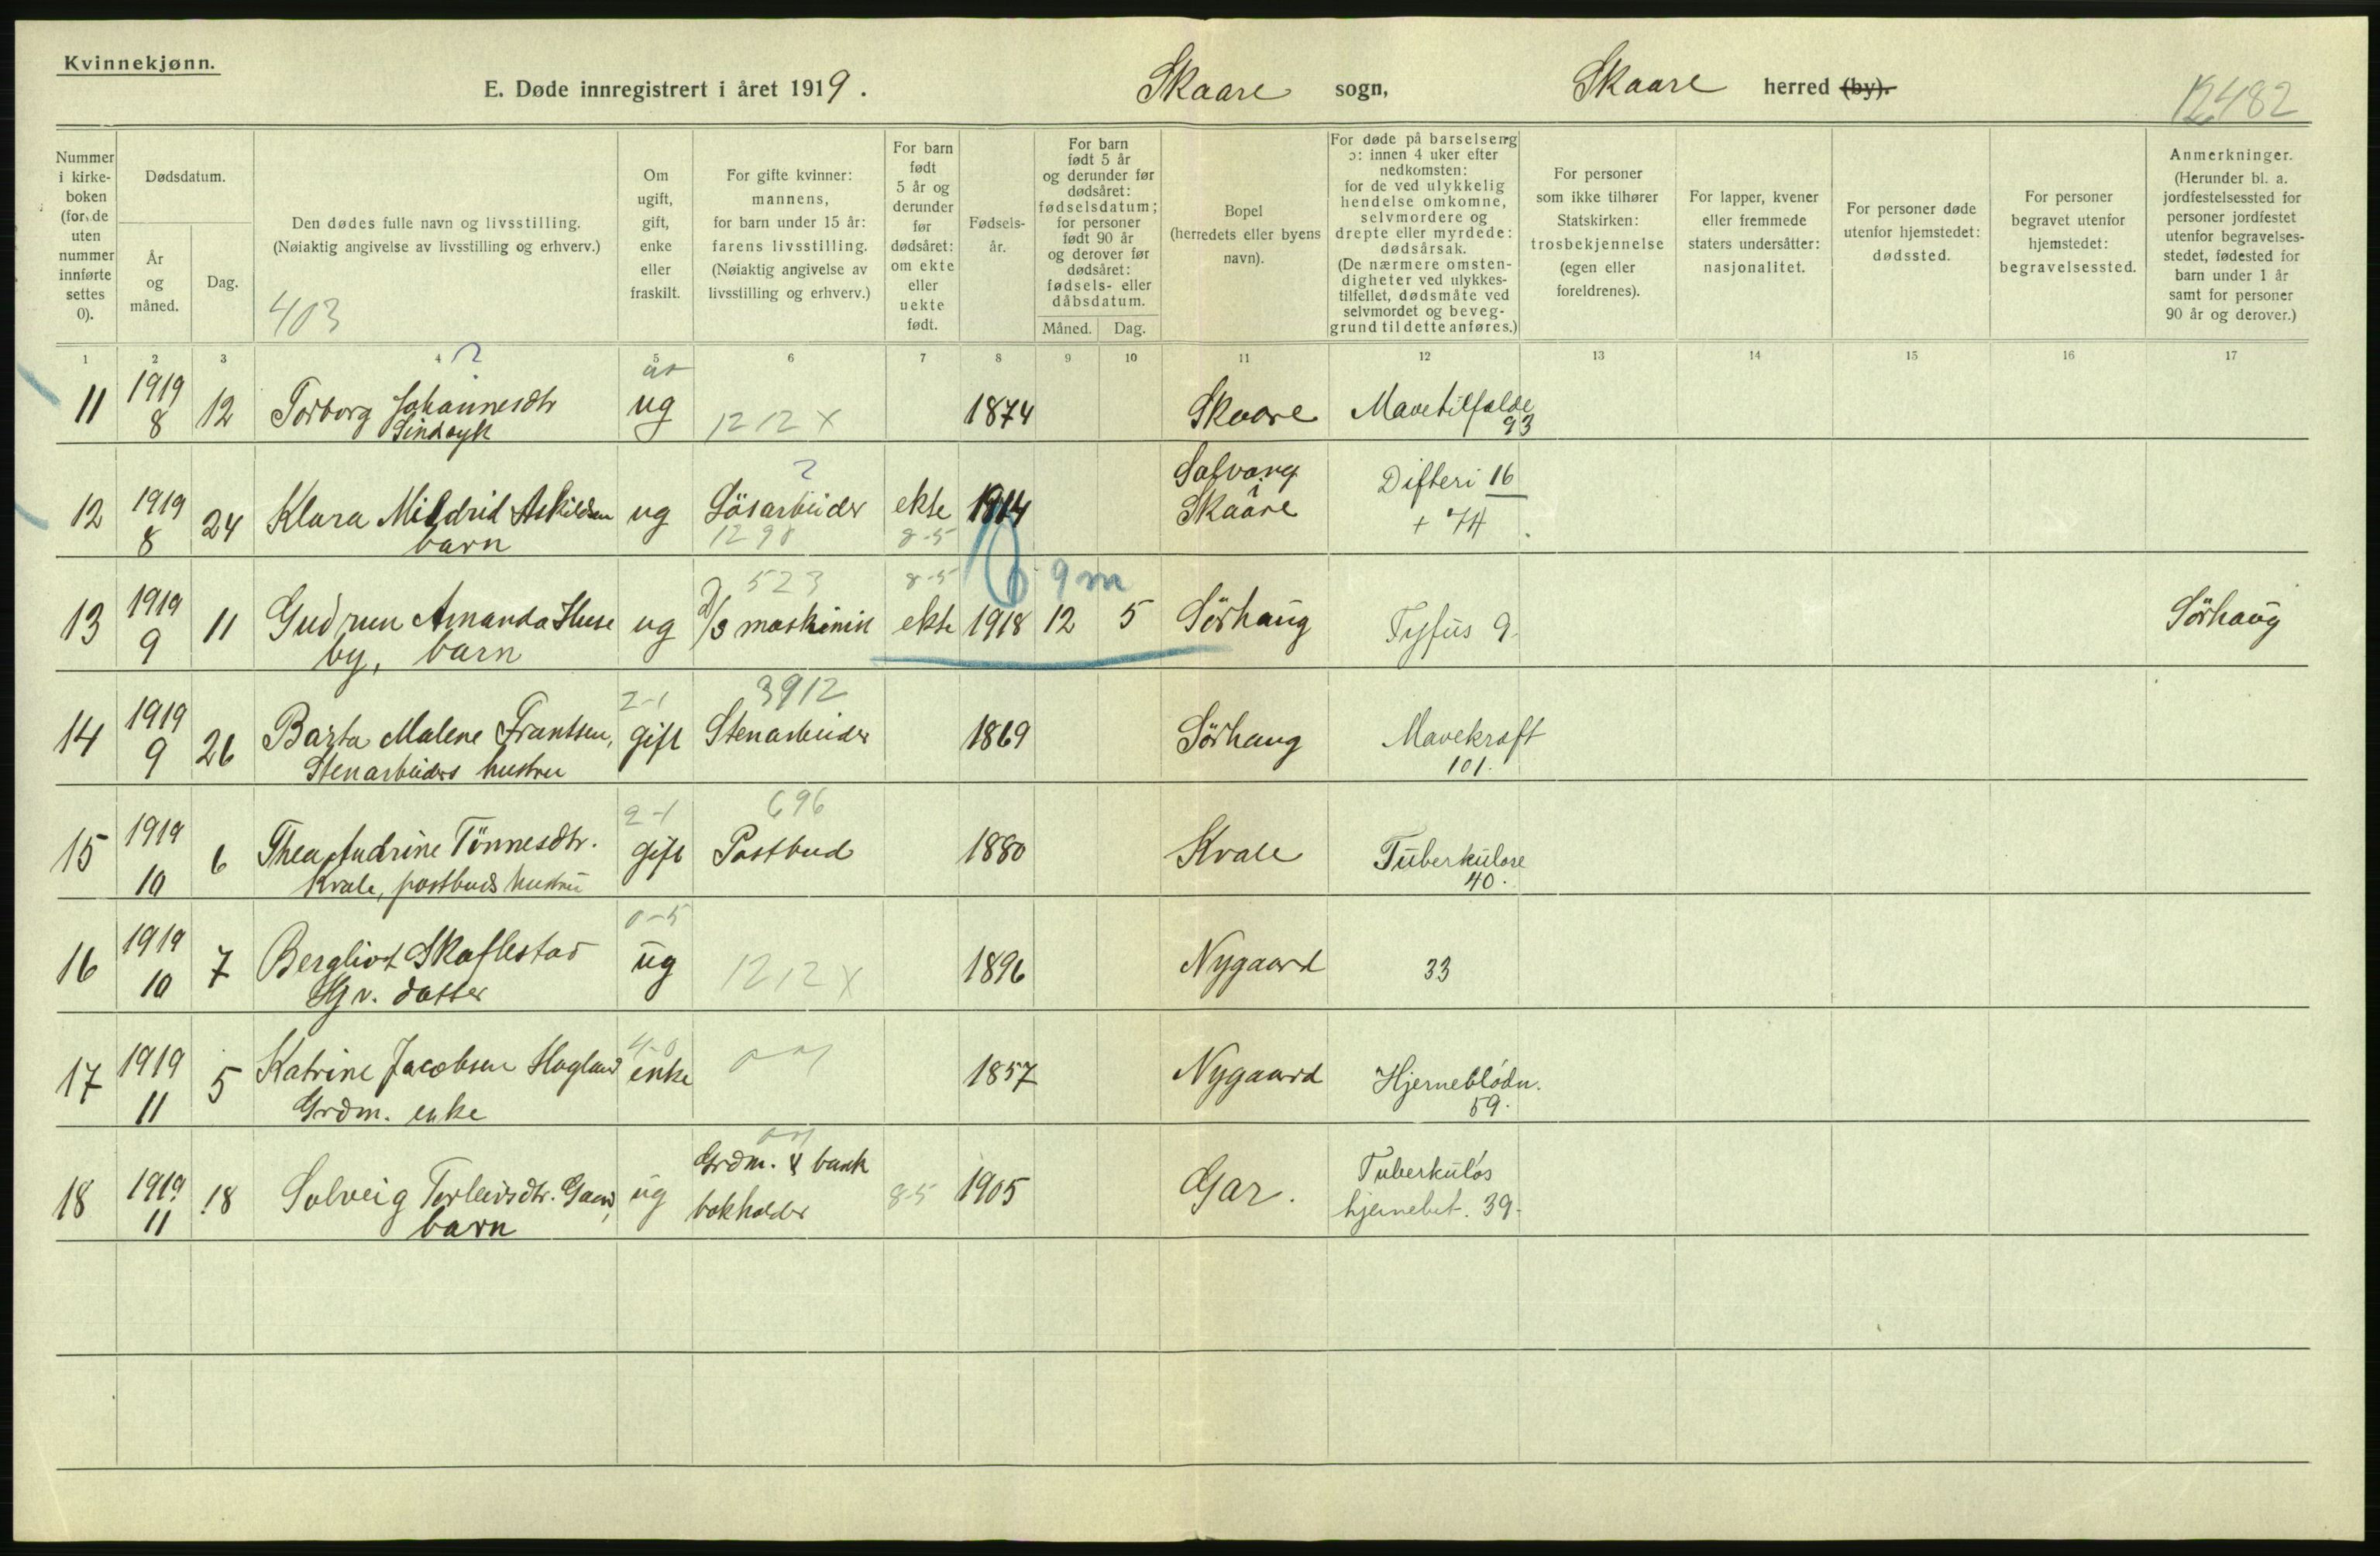 Kvinnekjønn.
E. Døde innregistrert i året 1919.
Skaare sogn,
Skaare herred (by).
12482
Nummer
i kirke-
boken
(for de
uten
nummer
innførte
settes
0).
Dødsdatum.
År
og
måned.
Dag.
Den dødes fulle navn og livsstilling.
(Nøiaktig angivelse av livsstilling og erhverv.)
403
Om
ugift,
gift,
enke
eller
fraskilt.
For gifte kvinner:
mannens,
for barn under 15 år:
farens livsstilling.
(Nøiaktig angivelse av
livsstilling og erhverv.)
For barn
født
5 år og
derunder
før
dødsåret:
om ekte
eller
uekte
født.
Fødsels-
år.
For barn
født 5 år
og derunder før
dødsåret:
fødselsdatum;
for personer
født 90 år
og derover før
dødsåret:
fødsels- eller
dåbsdatum.
Måned.
Dag.
Bopel
(herredets eller byens
navn).
For døde på barselseng
ɔ: innen 4 uker efter
nedkomsten:
for de ved ulykkelig
hendelse omkomne,
selvmordere og
drepte eller myrdede:
dødsårsak.
(De nærmere omsten-
digheter ved ulykkes-
tilfellet, dødsmåte ved
selvmordet og beveg-
grund til dette anføres.)
For personer
som ikke tilhører
Statskirken:
trosbekjennelse
(egen eller
foreldrenes).
For lapper, kvener
eller fremmede
staters undersåtter:
nasjonalitet.
For personer døde
utenfor hjemstedet:
dødssted.
For personer
begravet utenfor
hjemstedet:
begravelsessted.
Anmerkninger.
(Herunder bl. a.
jordfestelsessted for
personer jordfestet
utenfor begravelses-
stedet, fødested for
barn under 1 år
samt for personer
90 år og derover.)
1 2 3 4 5 6 7 8 9 10 11 12 13 14 15 16 17
?
11 1919 8 12 Torborg Johannesdtr ug 1212 x 1874 Skaare Mavetilfælde
93
?
12 1919 8 24 Klara Mildrid Askildsen ug Lösarbeider ekte 1914 Solvang Skaare Difteri 16
barn 1298 8-5 + 74
523 8-5 9 m
13 1919 9 11 Gudrun Amanda Huse ug D/S maskinin ekte 1918 12 5 Sörhaug Tyfus 9. Sörhaug
by, barn
2-1 3912
14 1919 9 26 Barta Malene Frantsen, gift Stenarbeider 1869 Sörhaug Mavekraft
Stenarbeiders hustru 101.
2-1 696
15 1919 10 6 Thea Andrine Tönnesdtr. gift Postbud 1880 Kvale Tuberkulose
Kvale, postbuds hustru 40.
0-5
16 1919 10 7 Bergliot Skaflestad ug 1212 x 1896 Nygaard 33
Gv. datter
4-0
17 1919 11 5 Katrine Jacobsen Hagland enke 1857 Nygaard Hjerneblödn.
Grdm. enke 59.
18 1919 11 18 Solveig Torleivsdtr. Gaard, ug Grdm. & bank 8-5 1905 Gar. Tuberkulös
barn bokholder hjernebet. 39.